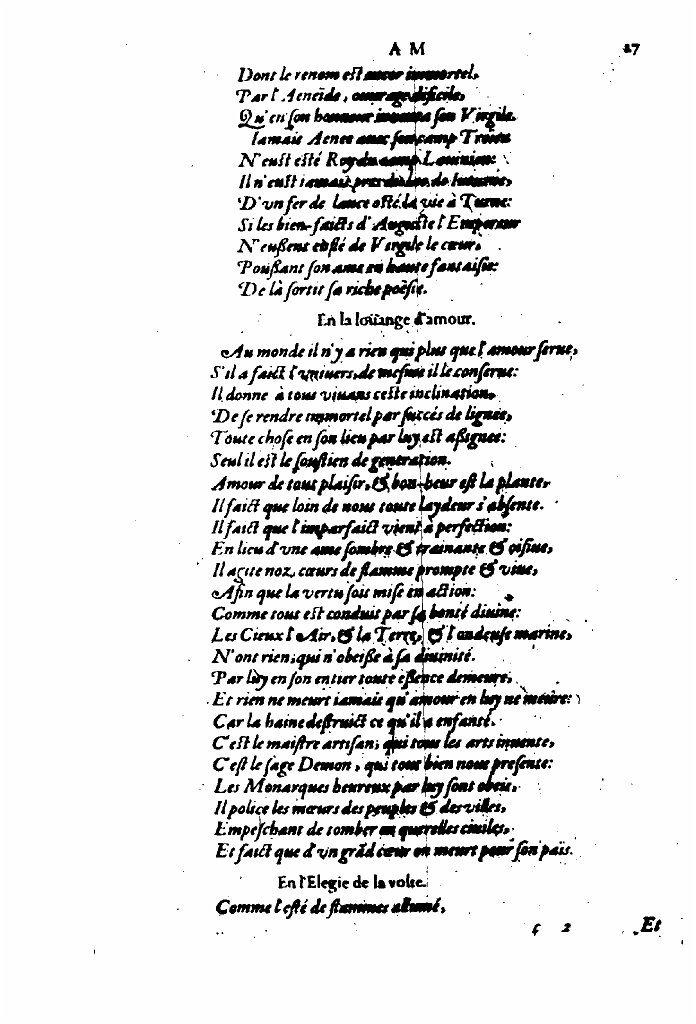 A M 27
Dont le renom est encor immortel,
Par l'Aeneïde, ouurage difficile,
Qu'en son honneur inuenta son Virgile.
Iamais Aenee auec son camp Troien
N'eust esté Roy du camp Lauinien:
Il n'eust iamais de
D'vn fer de lance osté la vie à Turne:
Si les bien-faicts d'Auguste l'Empereur
N'eußent enflé de Virgile le cœur,
Poußant son ame en haute fantaisie:
De là sortit sa riche poësie.
En la loüange d'amour.
Au monde il n'y a rien qui plus que l'amour serue,
S'il a faict l'vniuers, de mesme il le conserue:
Il donne à tous viuans ceste inclination,
De se rendre immortel par succés de lignee,
Toute chose en son lieu par luy est aßignee:
Seul il est le soustien de generation.
Amour de tout plaisir, & bon-heur est la plante,
Il faict que loin de nous toute laydeur s'absente.
Il faict que l'imparfaict vient à perfection:
En lieu d'vne ame sombre & trainante & oisiue,
Il agite noz cœurs de flamme prompte & viue,
Afin que la vertu soit mise en action:
Comme tout est conduit par sa bonté diuine:
Les Cieux l'Air, & la Terre, & l'ondeuse marine,
N'ont rien, qui n'obeiße à sa diuinité.
Par luy en son entier toute eßence demeure,
Et rien ne meurt iamais qu'amour en luy ne meure:
Car la haine destruict ce qu'il a enfanté.
C'est le maistre artisan, qui tous les arts inuente,
C'est le sage Demon, qui tout bien nous presente:
Les Monarques heureux par luy sont obeis,
Il police les mœurs des peuples & des villes,
Empeschant de tomber en querelles ciuiles,
Et faict que d'vn grãd cœur on meurt pour son païs.
En l'Elegie de la volte.
Comme l'esté de flammes allumé,
ς 2 Et